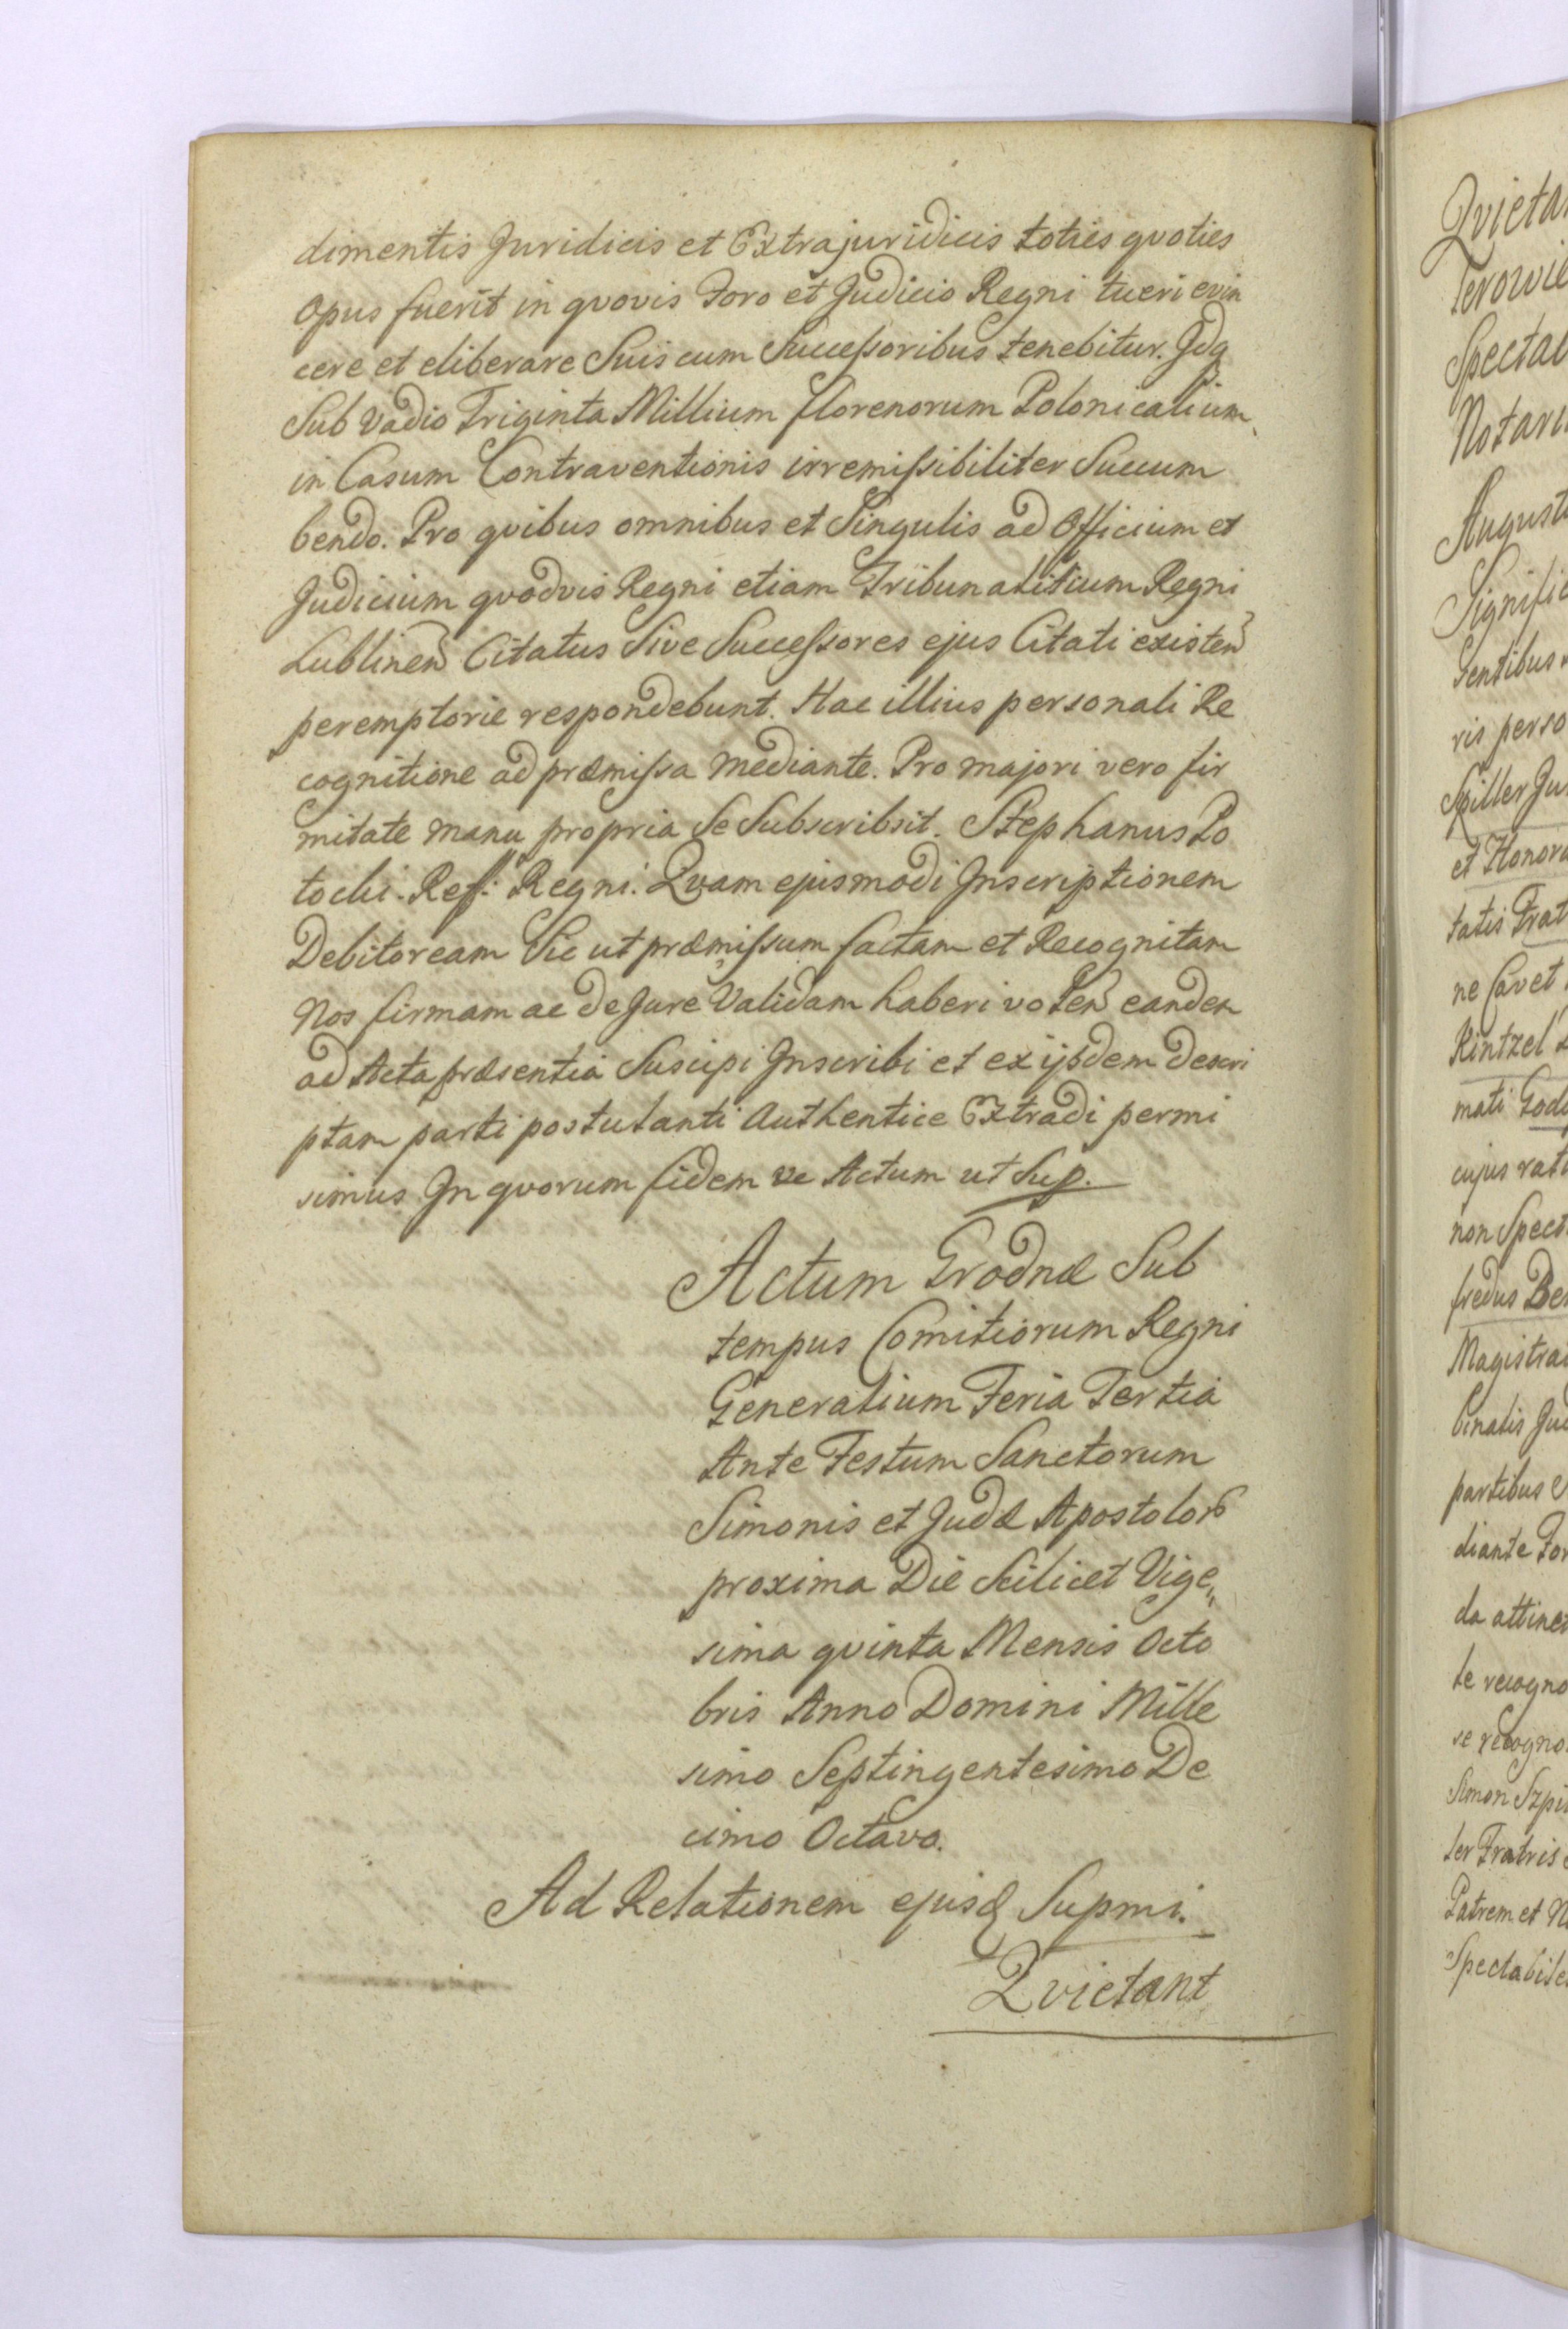 dimentis Juridicis et Extrajuridicis toties qvoties
opus fuerit in qvovis Foro et Judicio Regni tueri evin
cere et eliberare Suis cum Successoribus tenebitur. Idq
Sub vadio Triginta Millium florenorum Polonicalium
in Casum Contraventionis irremissibiliter Succum
bendo. Pro qvibus omnibus et Singulis ad Officium et
Judicium qvodvis Regni etiam Tribunalitium Regni
Lublinen Citatus Sive Successores ejus Citati existen
peremptorie respondebunt. Hac illius personali Re
cognitione ad præmissa mediante. Pro majori vero fir
mitate manu propria Se Subscribsit. Stephanus Po
tocki. Reff: Regni. Qvam ejusmodi Inscriptionem
Debitoream Sic ut præmissum factam et Recognitam
Nos firmam ac de Jure Validam haberi volen eandem
ad Acta præsentia Suscipi Inscribi et ex ijsdem descri
ptam parti postulanti Authentice Extradi permi
simus In qvorum fidem Actum ut Sup.
Actum Grodnæ Sub
tempus Comitiorum Regni
Generalium Feria Tertia
Ante Festum Sanctorum
Simonis et Judæ Apostolor
proxima Die Scilicet Vige„
sima qvinta Mensis Octo
bris Anno Domini Mille
simo Septingentesimo De
cimo Octavo.
Ad Relationem ejusd Supmi.
Qvietant
Qvieta
Spectab
Notari
Augusti
Signific
Gentibus
ris perso
Spiller Ju
et Honora
tatis Frat
ne Cavet
Kintzel
mati Godo
cujus rati
non Spect
fredus Be
Magistra
binalis Jud
partibus
diante For
da attinet
te recogno
se recogno
Simon Szpil
ler Fratris
Patrem et N
Spectabile